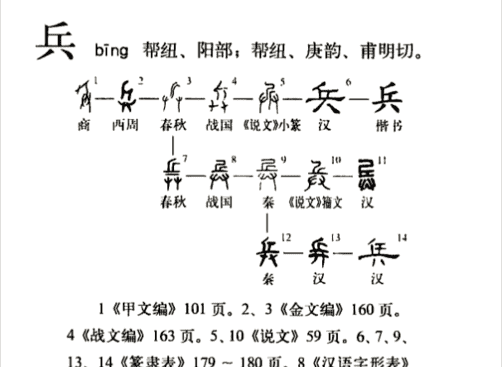 兵 bīng 帮纽、阳部;帮纽、庚韵、甫明切。
1 2 3 4 5 6
商 西周 春秋 战国 《说文》小篆 汉 楷书
7 8 9 10 11
春秋 战国 秦 《说文》籀文 汉
12 13 14
秦 汉 汉
1《甲文编》101 页。2、3《金文编》160 页。
4《战文编》163 页。5、10《说文》59 页。6、7、9、
13、14《篆隶表》179 ~ 180 页。8《汉语字形表》